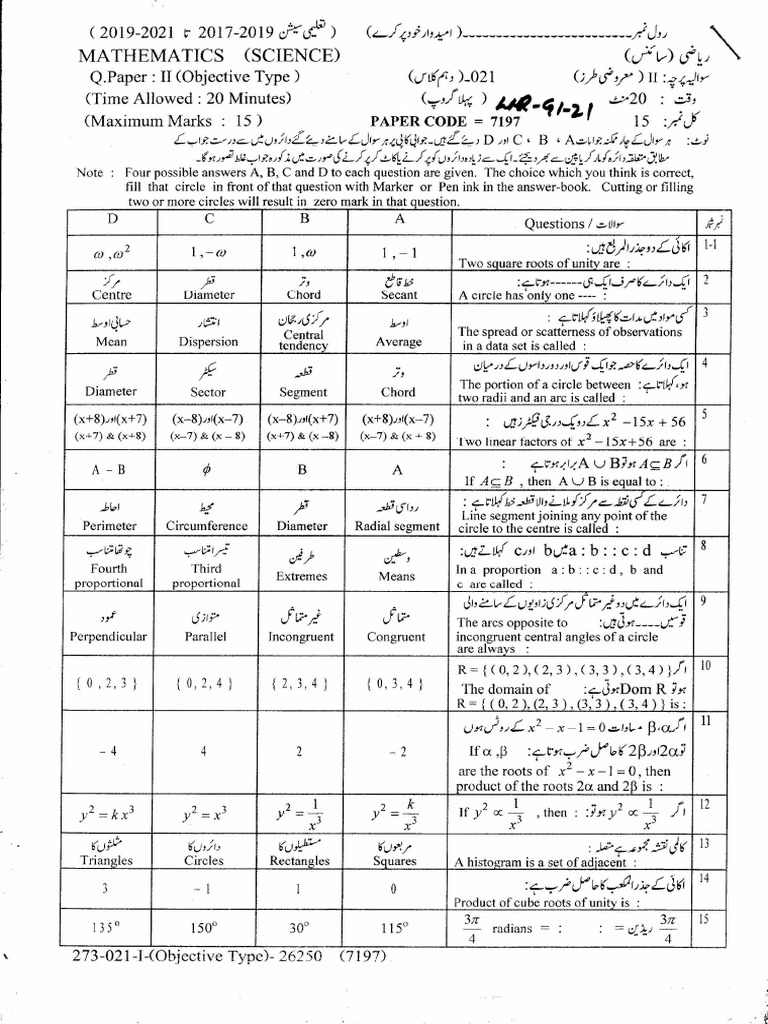 رول نمبر ـــــــــــــــــــ (امیدوار خود پر کرے) (تعلیمی سیشن 2017-2019 تا 2019-2021)
MATHEMATICS (SCIENCE) ریاضی (سائنس)
Q.Paper : II (Objective Type) 021ـ دہم کلاس) سوالیہ پرچہ : II (معروضی طرز)
(Time Allowed : 20 Minutes) (پہلا گروپ) وقت : 20 منٹ
LHR-G1-21
(Maximum Marks : 15) PAPER CODE = 7197 کل نمبر : 15
نوٹ: ہر سوال کے چار ممکنہ جوابات A ، B ، C اور D دیئے گئے ہیں۔ جوابی کاپی پر ہر سوال کے سامنے دیئے گئے دائروں میں سے درست جواب کے
مطابق متعلقہ دائرہ کو مارکر یا پین سے بھر دیجئے۔ ایک سے زیادہ دائروں کو پر کرنے یا کاٹ کر پر کرنے کی صورت میں مذکورہ جواب غلط تصور ہوگا۔
Note : Four possible answers A, B, C and D to each question are given. The choice which you think is correct,
fill that circle in front of that question with Marker or Pen ink in the answer-book. Cutting or filling
two or more circles will result in zero mark in that question.
D C B A Questions / سوالات نمبر شمار
ω , ω² 1 , −ω 1 , ω 1 , −1 اکائی کے دو جذر المربع ہیں: 1-1
Two square roots of unity are :
مرکز قطر وتر خط قاطع ایک دائرے کا صرف ایک ہی ------ ہوتا ہے: 2
Centre Diameter Chord Secant A circle has only one ---- :
حسابی اوسط انتشار مرکزی رجحان اوسط کسی مواد میں مدات کا پھیلاؤ کہلاتا ہے: 3
Mean Dispersion Central tendency Average The spread or scatterness of observations
in a data set is called :
قطر سیکٹر قطعہ وتر ایک دائرے کا حصہ جو ایک قوس اور دو رداسوں کے درمیان 4
ہو، کہلاتا ہے: The portion of a circle between
Diameter Sector Segment Chord two radii and an arc is called :
(x+7)اور(x+8) (x–7)اور(x–8) (x+7)اور(x–8) (x–7)اور(x+8) x² −15x + 56 کے دو یک درجی فیکٹرز ہیں : 5
(x+7) & (x+8) (x–7) & (x – 8) (x+7) & (x–8) (x–7) & (x + 8) Two linear factors of x² −15x+56 are :
A − B ϕ B A اگر A⊆B ہو تو A ∪ B برابر ہوتا ہے : 6
If A⊆B , then A ∪ B is equal to :
احاطہ محیط قطر رداسی قطعہ دائرے کے کسی نقطہ سے مرکز کو ملانے والا قطعہ خط کہلاتا ہے: 7
Perimeter Circumference Diameter Radial segment Line segment joining any point of the
circle to the centre is called :
چوتھا تناسب تیسرا تناسب طرفین وسطین تناسب a : b : : c : d میں b اور c کہلاتے ہیں: 8
Fourth proportional Third proportional Extremes Means In a proportion a : b : : c : d , b and
c are called :
عمود متوازی غیر متماثل متماثل ایک دائرے میں دو غیر متماثل مرکزی زاویوں کے سامنے والی 9
قوسیں ---- ہوتی ہیں: The arcs opposite to
Perpendicular Parallel Incongruent Congruent incongruent central angles of a circle
are always :
{ 0 , 2 , 3 } { 0 , 2 , 4 } { 2 , 3 , 4 } { 0 , 3 , 4 } اگر R = { ( 0, 2 ) , ( 2, 3 ) , ( 3, 3 ) , ( 3, 4 ) } 10
ہو تو Dom R ہوتی ہے: The domain of
R = { ( 0, 2 ) , (2, 3 ) , (3, 3 ) , ( 3, 4 ) } is :
− 4 4 2 − 2 اگر α،β مساوات x² − x − 1 = 0 کے روٹس ہوں 11
تو 2α اور 2β کا حاصل ضرب ہوتا ہے: If α , β
are the roots of x² − x − 1 = 0 , then
product of the roots 2α and 2β is :
y² = kx³ y² = x³ y² = 1/x³ y² = k/x³ If y² ∝ 1/x³ , then : اگر y² ∝ 1/x³ ہو تو : 12
مثلثوں کا دائروں کا مستطیلوں کا مربعوں کا کالمی نقشہ مجموعہ ہے متصلہ : 13
Triangles Circles Rectangles Squares A histogram is a set of adjacent :
3 − 1 1 0 اکائی کے جذر المکعب کا حاصل ضرب ہے: 14
Product of cube roots of unity is :
135° 150° 30° 115° 3π/4 radians = : : = ریڈین 3π/4 15
273-021-I-(Objective Type)- 26250 (7197)